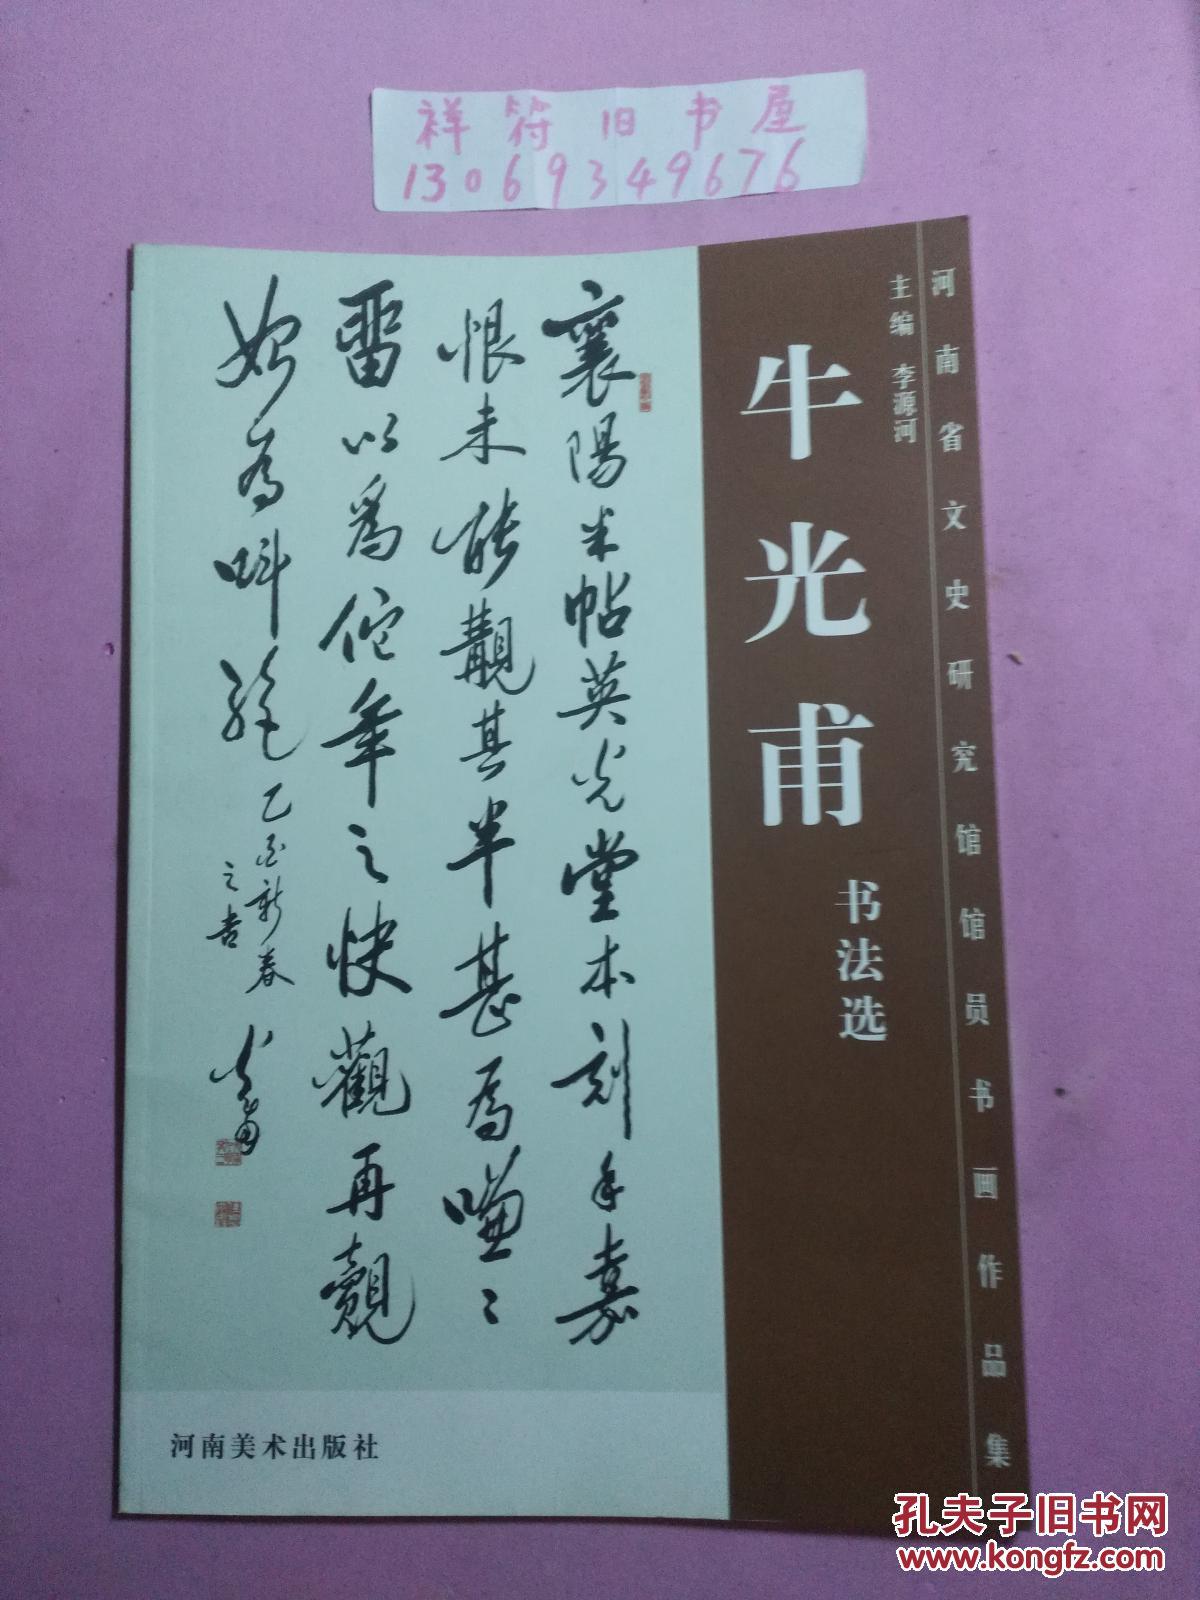 祥符旧书屋
13069349676
河南省文史研究馆馆员书画作品集
主编 李源河
牛光甫
书法选
襄陽米帖英光堂本刻手嘉
恨未能覩其半甚為
以為佗年之快觀再
為
乙酉新春
之吉
河南美术出版社
孔夫子旧书网
www.kongfz.com